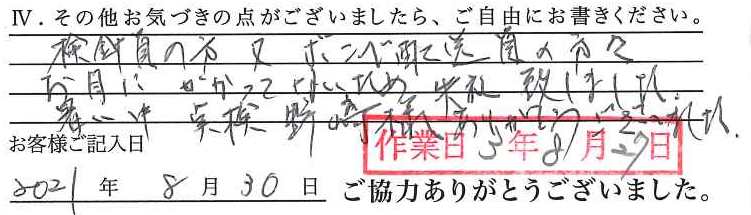 Ⅳ．その他お気づきの点がございましたら、ご自由にお書きください。
検針員の方又ボンベ配送員の方々
お目にかかってないため失礼致しました。
暑い中点検野崎様ありがとうございました。
お客様ご記入日
作業日 3年8月27日
2021年8月30日 ご協力ありがとうございました。